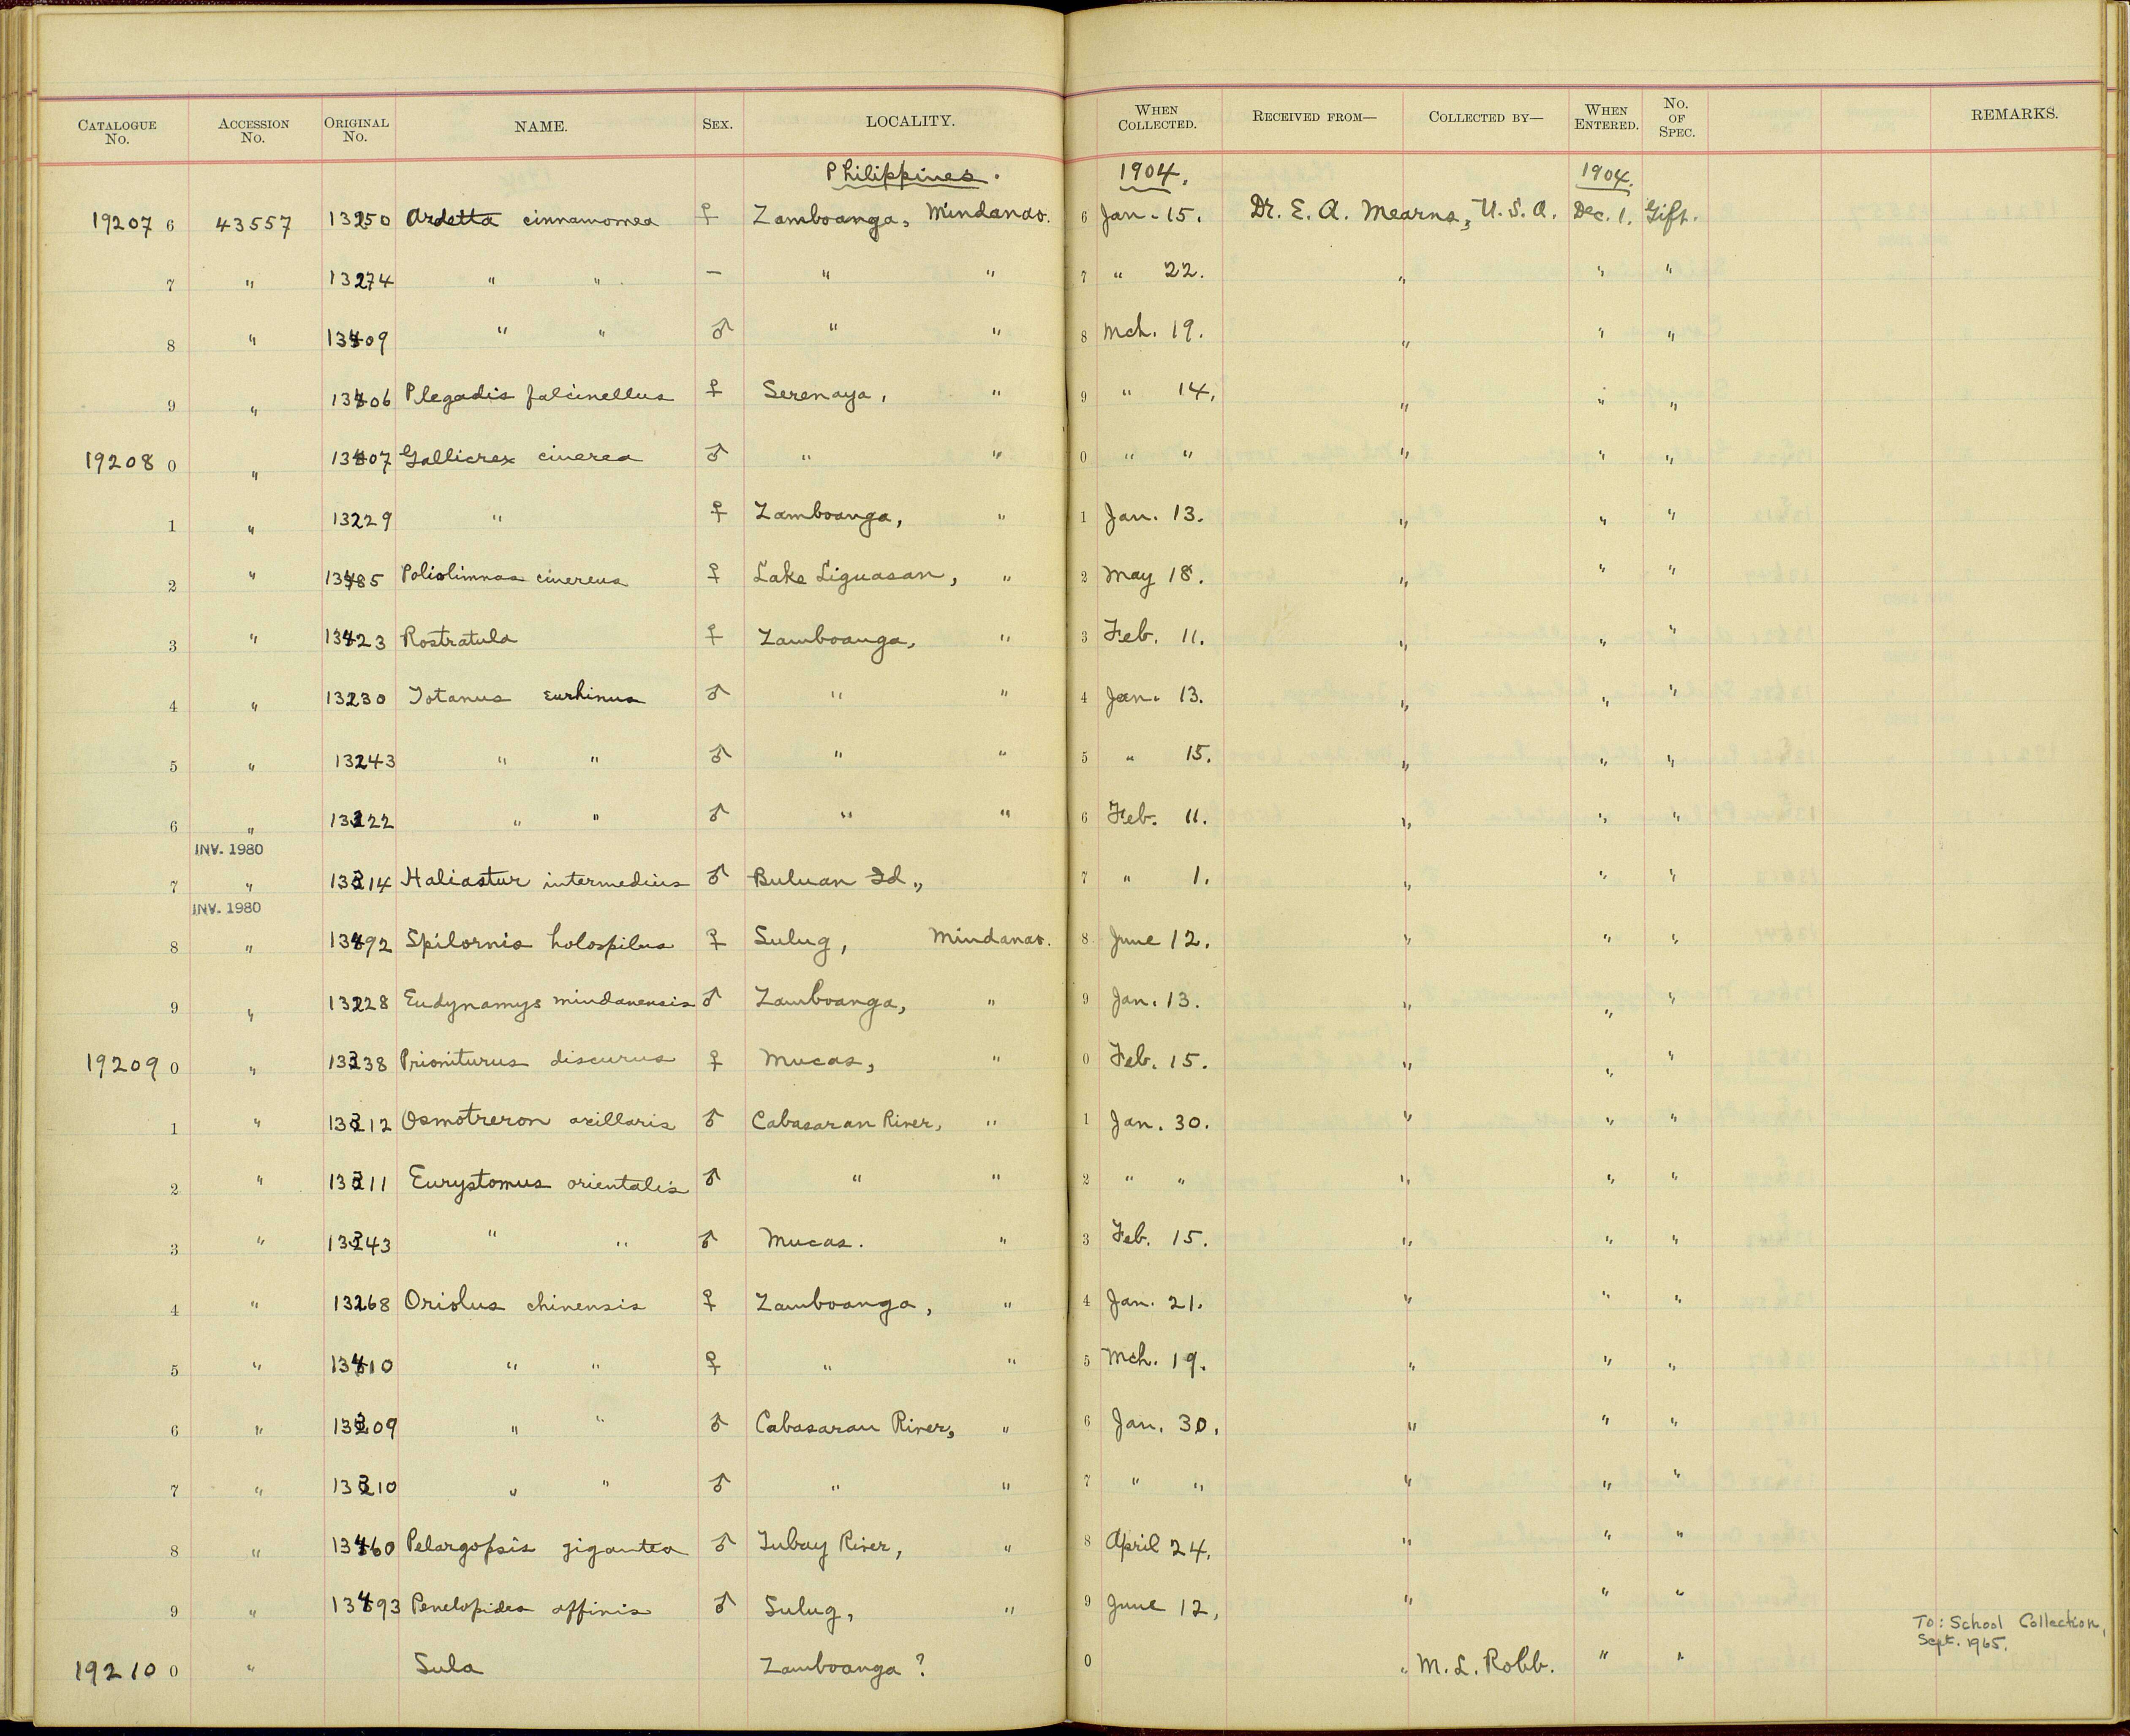 CATALOGUE No. ACCESSION No. ORIGINAL No. NAME. SEX. LOCALITY. WHEN COLLECTED. RECEIVED FROM— COLLECTED BY— WHEN ENTERED. No. OF SPEC. REMARKS.
Philippines. 1904. 1904.
19207 6 43557 13250 Ardetta cinnamomea ♀ Zamboanga, Mindanao. 6 Jan. 15. Dr. E. A. Mearns, U.S.A. Dec. 1. Gift.
7 " 13274 " " — " " 7 " 22. " " "
8 " 13409 " " ♂ " " 8 Mch. 19. " " "
9 " 13406 Plegadis falcinellus ♀ Serenaya, " 9 " 14. " " "
19208 0 " 13407 Gallicrex cinerea ♂ " " 0 " " " " "
1 " 13229 " ♀ Zamboanga, " 1 Jan. 13. " " "
2 " 13485 Poliolimnas cinereus ♀ Lake Liguasan, " 2 May 18. " " "
3 " 13323 Rostratula ♀ Zamboanga, " 3 Feb. 11. " " "
4 " 13230 Totanus eurhinus ♂ " " 4 Jan. 13. " " "
5 " 13243 " " ♂ " " 5 " 15. " " "
6 " 13322 " " ♂ " " 6 Feb. 11. " " "
INV. 1980
7 " 13314 Haliastur intermedius ♂ Buluan Id., 7 " 1. " " "
INV. 1980
8 " 13492 Spilornis holospilus ♀ Sulug, Mindanao. 8 June 12. " " "
9 " 13228 Eudynamys mindanensis ♂ Zamboanga, " 9 Jan. 13. " " "
19209 0 " 13338 Prioniturus discurus ♀ Mucas, " 0 Feb. 15. " " "
1 " 13312 Osmotreron axillaris ♂ Cabasaran River, " 1 Jan. 30. " " "
2 " 13311 Eurystomus orientalis ♂ " " 2 " " " " "
3 " 13343 " " ♂ Mucas. " 3 Feb. 15. " " "
4 " 13268 Oriolus chinensis ♀ Zamboanga, " 4 Jan. 21. " " "
5 " 13410 " " ♀ " " 5 Mch. 19. " " "
6 " 13309 " " ♂ Cabasaran River, " 6 Jan. 30. " " "
7 " 13310 " " ♂ " " 7 " " " " "
8 " 13460 Pelargopsis gigantea ♂ Tubay River, " 8 April 24. " " "
9 " 13493 Penelopides affinis ♂ Sulug, " 9 June 12, " " "
To: School Collection,
Sept. 1965.
19210 0 " Sula Zamboanga ? 0 " M. L. Robb. " "